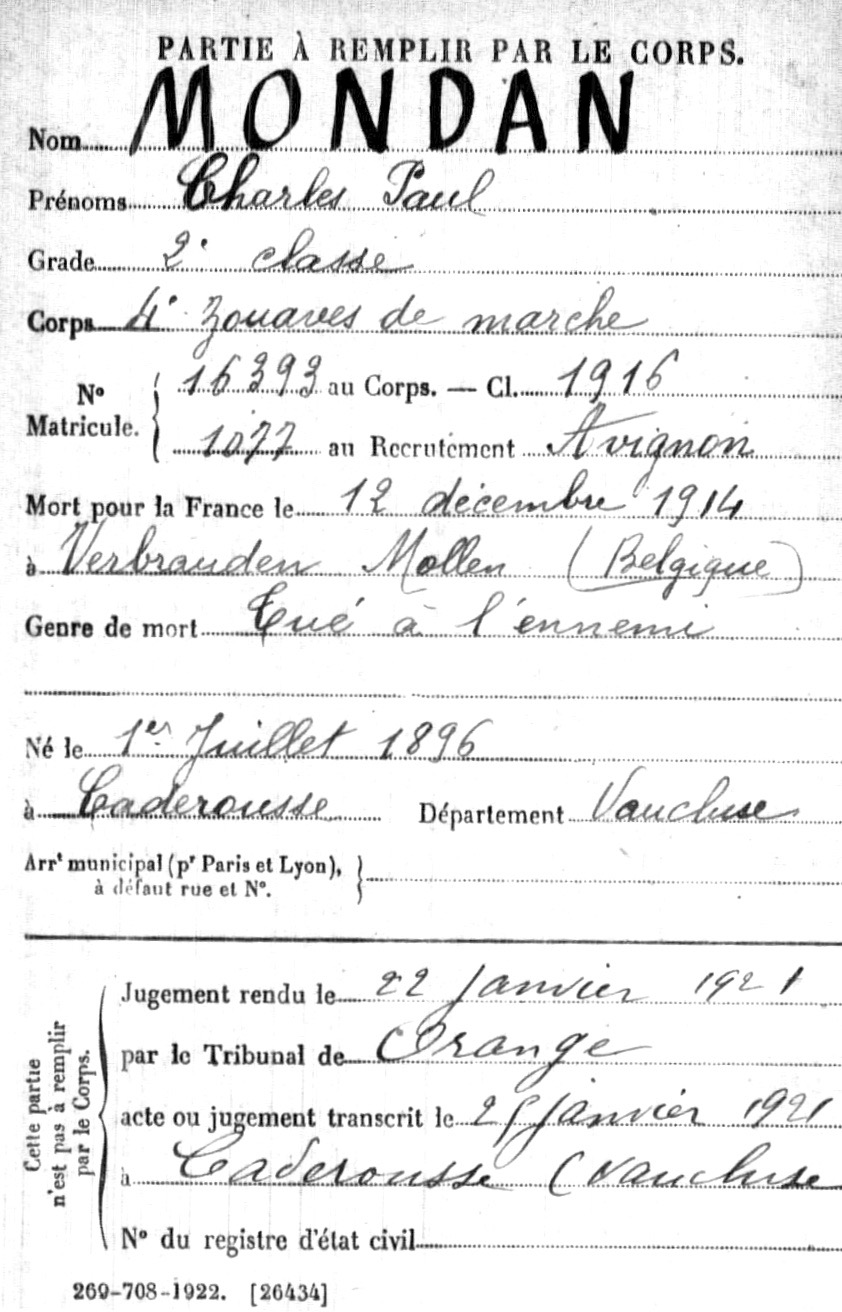 PARTIE À REMPLIR PAR LE CORPS.
Nom MONDAN
Prénoms Charles Paul
Grade 2e classe
Corps 4e Zouaves de marche
No Matricule. { 16393 au Corps. — Cl. 1916
1077 au Recrutement Avignon
Mort pour la France le 12 décembre 1914
à Verbranden Mollen (Belgique)
Genre de mort Tué à l'ennemi
Né le 1er Juillet 1896
à Caderousse Département Vaucluse
Arrt municipal (pr Paris et Lyon),
à défaut rue et No.
Cette partie n'est pas à remplir par le Corps.
Jugement rendu le 22 Janvier 1921
par le Tribunal de Orange
acte ou jugement transcrit le janvier 1921
à Caderousse (Vaucluse
No du registre d'état civil
269-708-1922. [26434]